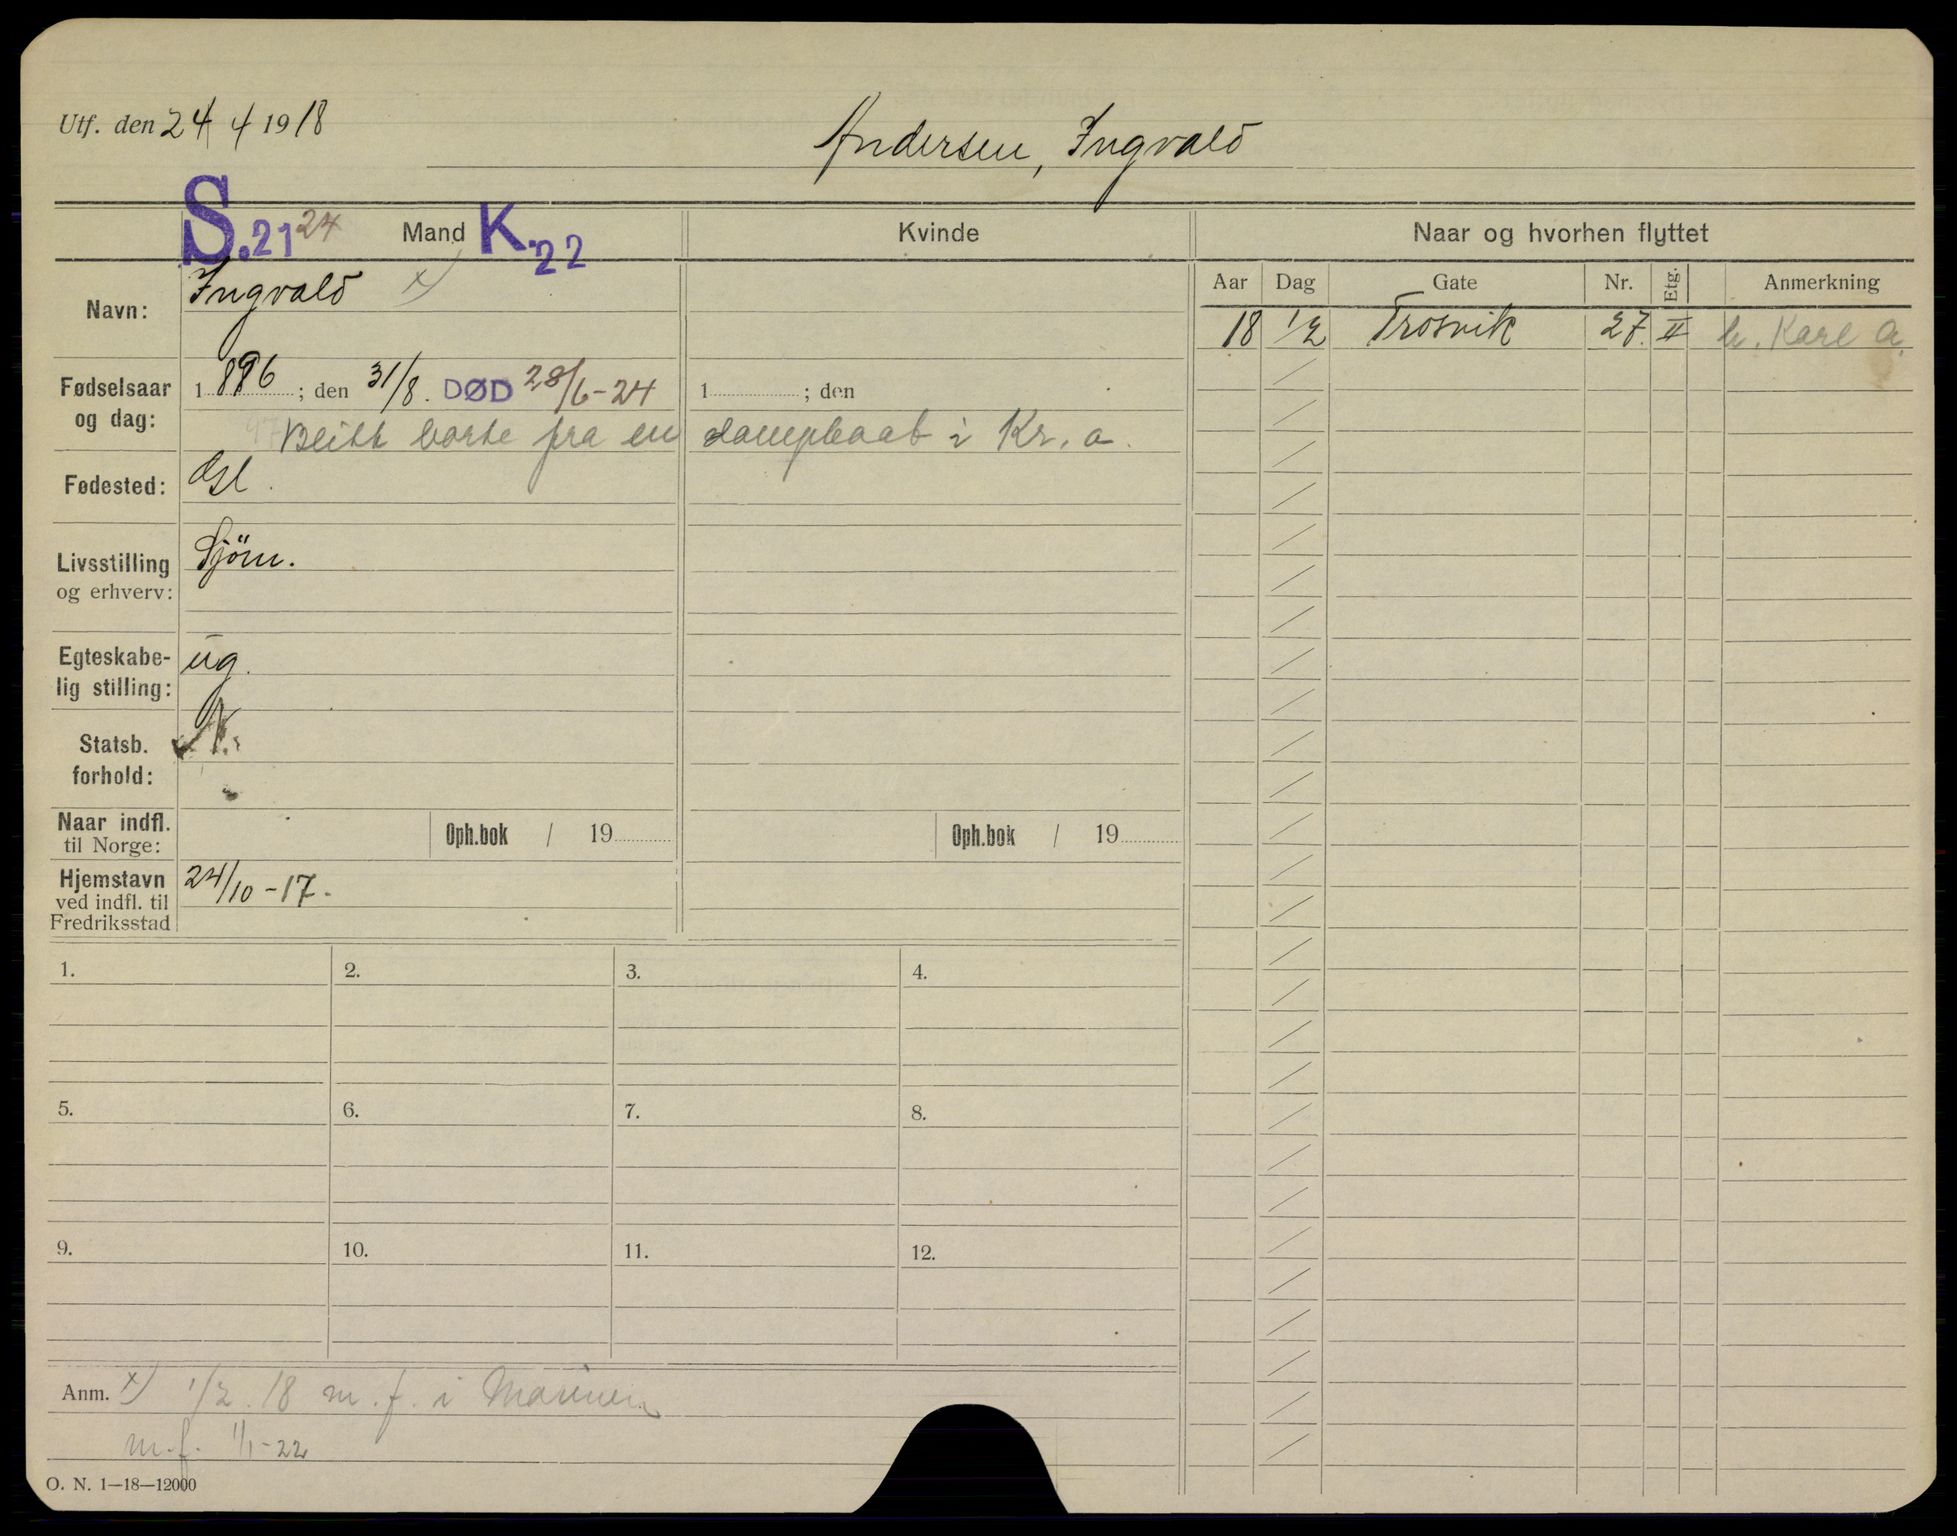 Utf. den 24/4 1918
Andersen, Ingvald
S.21 24 Mand K.22 Kvinde Naar og hvorhen flyttet
Aar Dag Gate Nr. Etg. Anmerkning
Navn: Ingvald x)
18 1/2 Trosvik 27. II h. Karl A.
Fødselsaar og dag: 1896; den 31/8. DØD 28/6-24 1 ; den
Blitt borte fra en dampbaat i Kr.a.
Fødested: Gsl.
Livsstilling og erhverv: Sjöm.
Egteskabe-
lig stilling: ug.
Statsb. forhold: N.
Naar indfl. til Norge: Oph.bok / 19 Oph.bok / 19
Hjemstavn ved indfl. til Fredriksstad 24/10-17.
1. 2. 3. 4.
5. 6. 7. 8.
9. 10. 11. 12.
Anm. x) 1/2. 18 m.f. i Marinen
m.f. 1/1-22
O. N. 1—18—12000